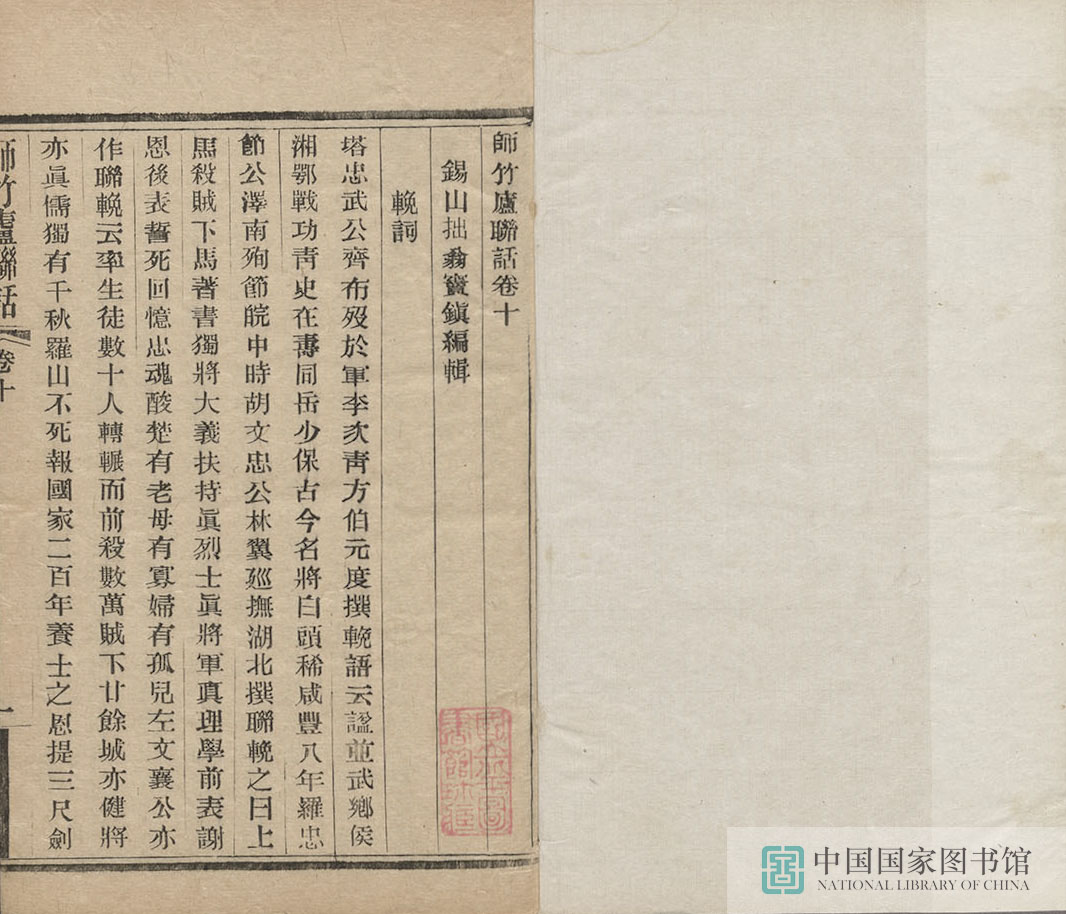 師竹廬聯話卷十
錫山拙翁竇鎮編輯
輓詞
塔忠武公齊布歿於軍李次青方伯元度撰輓語云諡並武鄉侯
湘鄂戰功青史在壽同岳少保古今名將白頭稀咸豐八年羅忠
節公澤南殉節皖中時胡文忠公林翼廵撫湖北撰聯輓之曰上
馬殺賊下馬著書獨將大義扶持眞烈士眞將軍眞理學前表謝
恩後表誓死回憶忠魂酸楚有老母有寡婦有孤兒左文襄公亦
作聯輓云率生徒數十人轉輾而前殺數萬賊下廿餘城亦健將
亦眞儒獨有千秋羅山不死報國家二百年養士之恩提三尺劍
師竹廬聯話 卷十
一
中国国家图书馆
NATIONAL LIBRARY OF CHINA